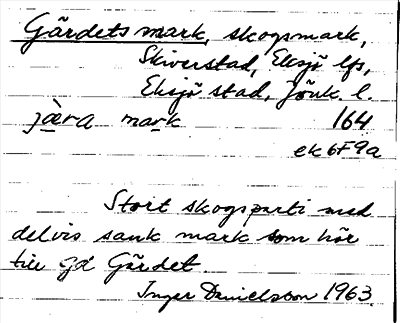 Gärdets mark, skogsmark,
Skiverstad, Eksjö lfs,
Eksjö stad, Jönk. l.
jæ̀ra mark 164
ek 6F9a
Stort skogsparti med
delvis sank mark som hör
till gd Gärdet.
Inger Danielsson 1963